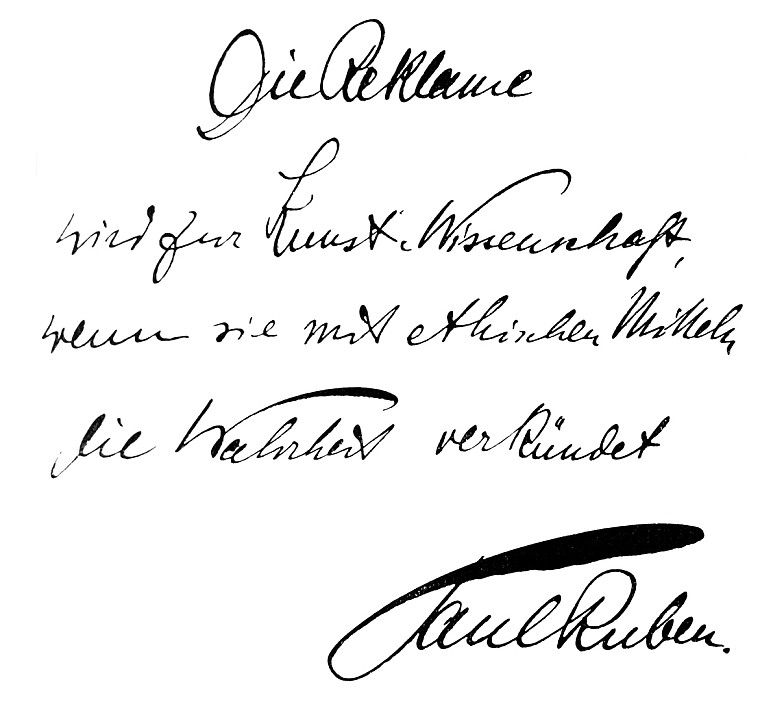 Die Reklame
wird zur Kunst-Wissenschaft,
wenn sie mit ethischen Mitteln
die Wahrheit verkündet
Paul Ruben.